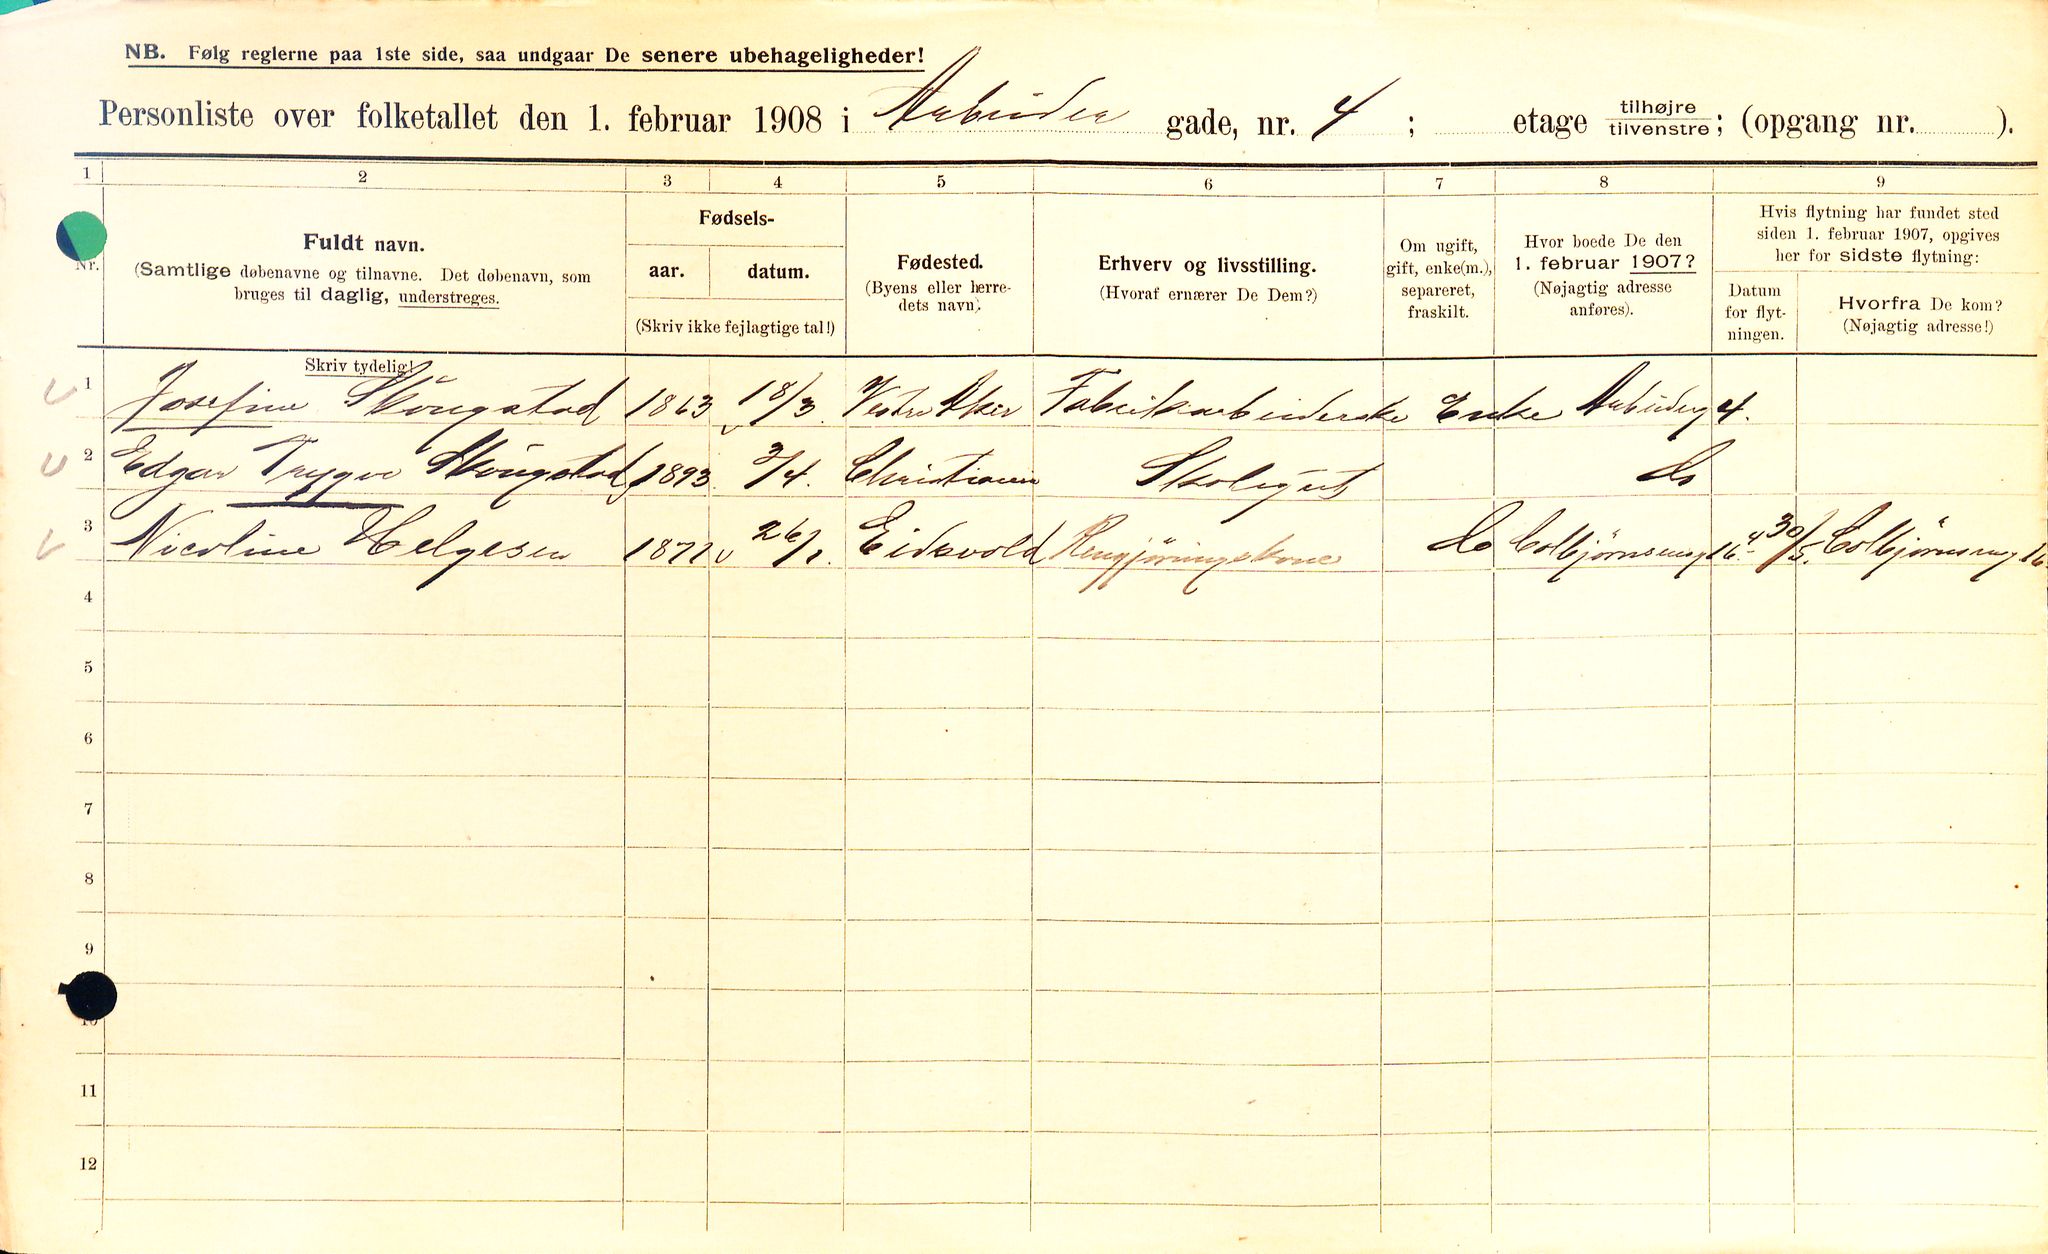 NB. Følg reglerne paa 1ste side, saa undgaar De senere ubehageligheder!
Personliste over folketallet den 1. februar 1908 i Arbeider gade, nr. 4 ; etage tilhøjre/tilvenstre; (opgang nr. ).
1 2 3 4 5 6 7 8 9
Nr.
Fuldt navn.
(Samtlige døbenavne og tilnavne. Det døbenavn, som
bruges til daglig, understreges.
Skriv tydelig!
Fødsels-
aar. datum.
(Skriv ikke fejlagtige tal!)
Fødested.
(Byens eller herre-
dets navn).
Erhverv og livsstilling.
(Hvoraf ernærer De Dem?)
Om ugift,
gift, enke(m.),
separeret,
fraskilt.
Hvor boede De den
1. februar 1907?
(Nøjagtig adresse
anføres).
Hvis flytning har fundet sted
siden 1. februar 1907, opgives
her for sidste flytning:
Datum
for flyt-
ningen.
Hvorfra De kom?
(Nøjagtig adresse!)
1 Josefine Skougstad 1863 18/3. Vestre Aker Fabrikarbeiderske Enke Arbiderg 4.
2 Edgar Trygve Skougstad 1893 3/4. Christiania Skolegut do
3 Nicoline Helgesen 1871 26/1. Eidsvold Rengjøringskone do Colbjørnsensg 16 30/5. Colbjørnseng 16
4
5
6
7
8
9
10
11
12